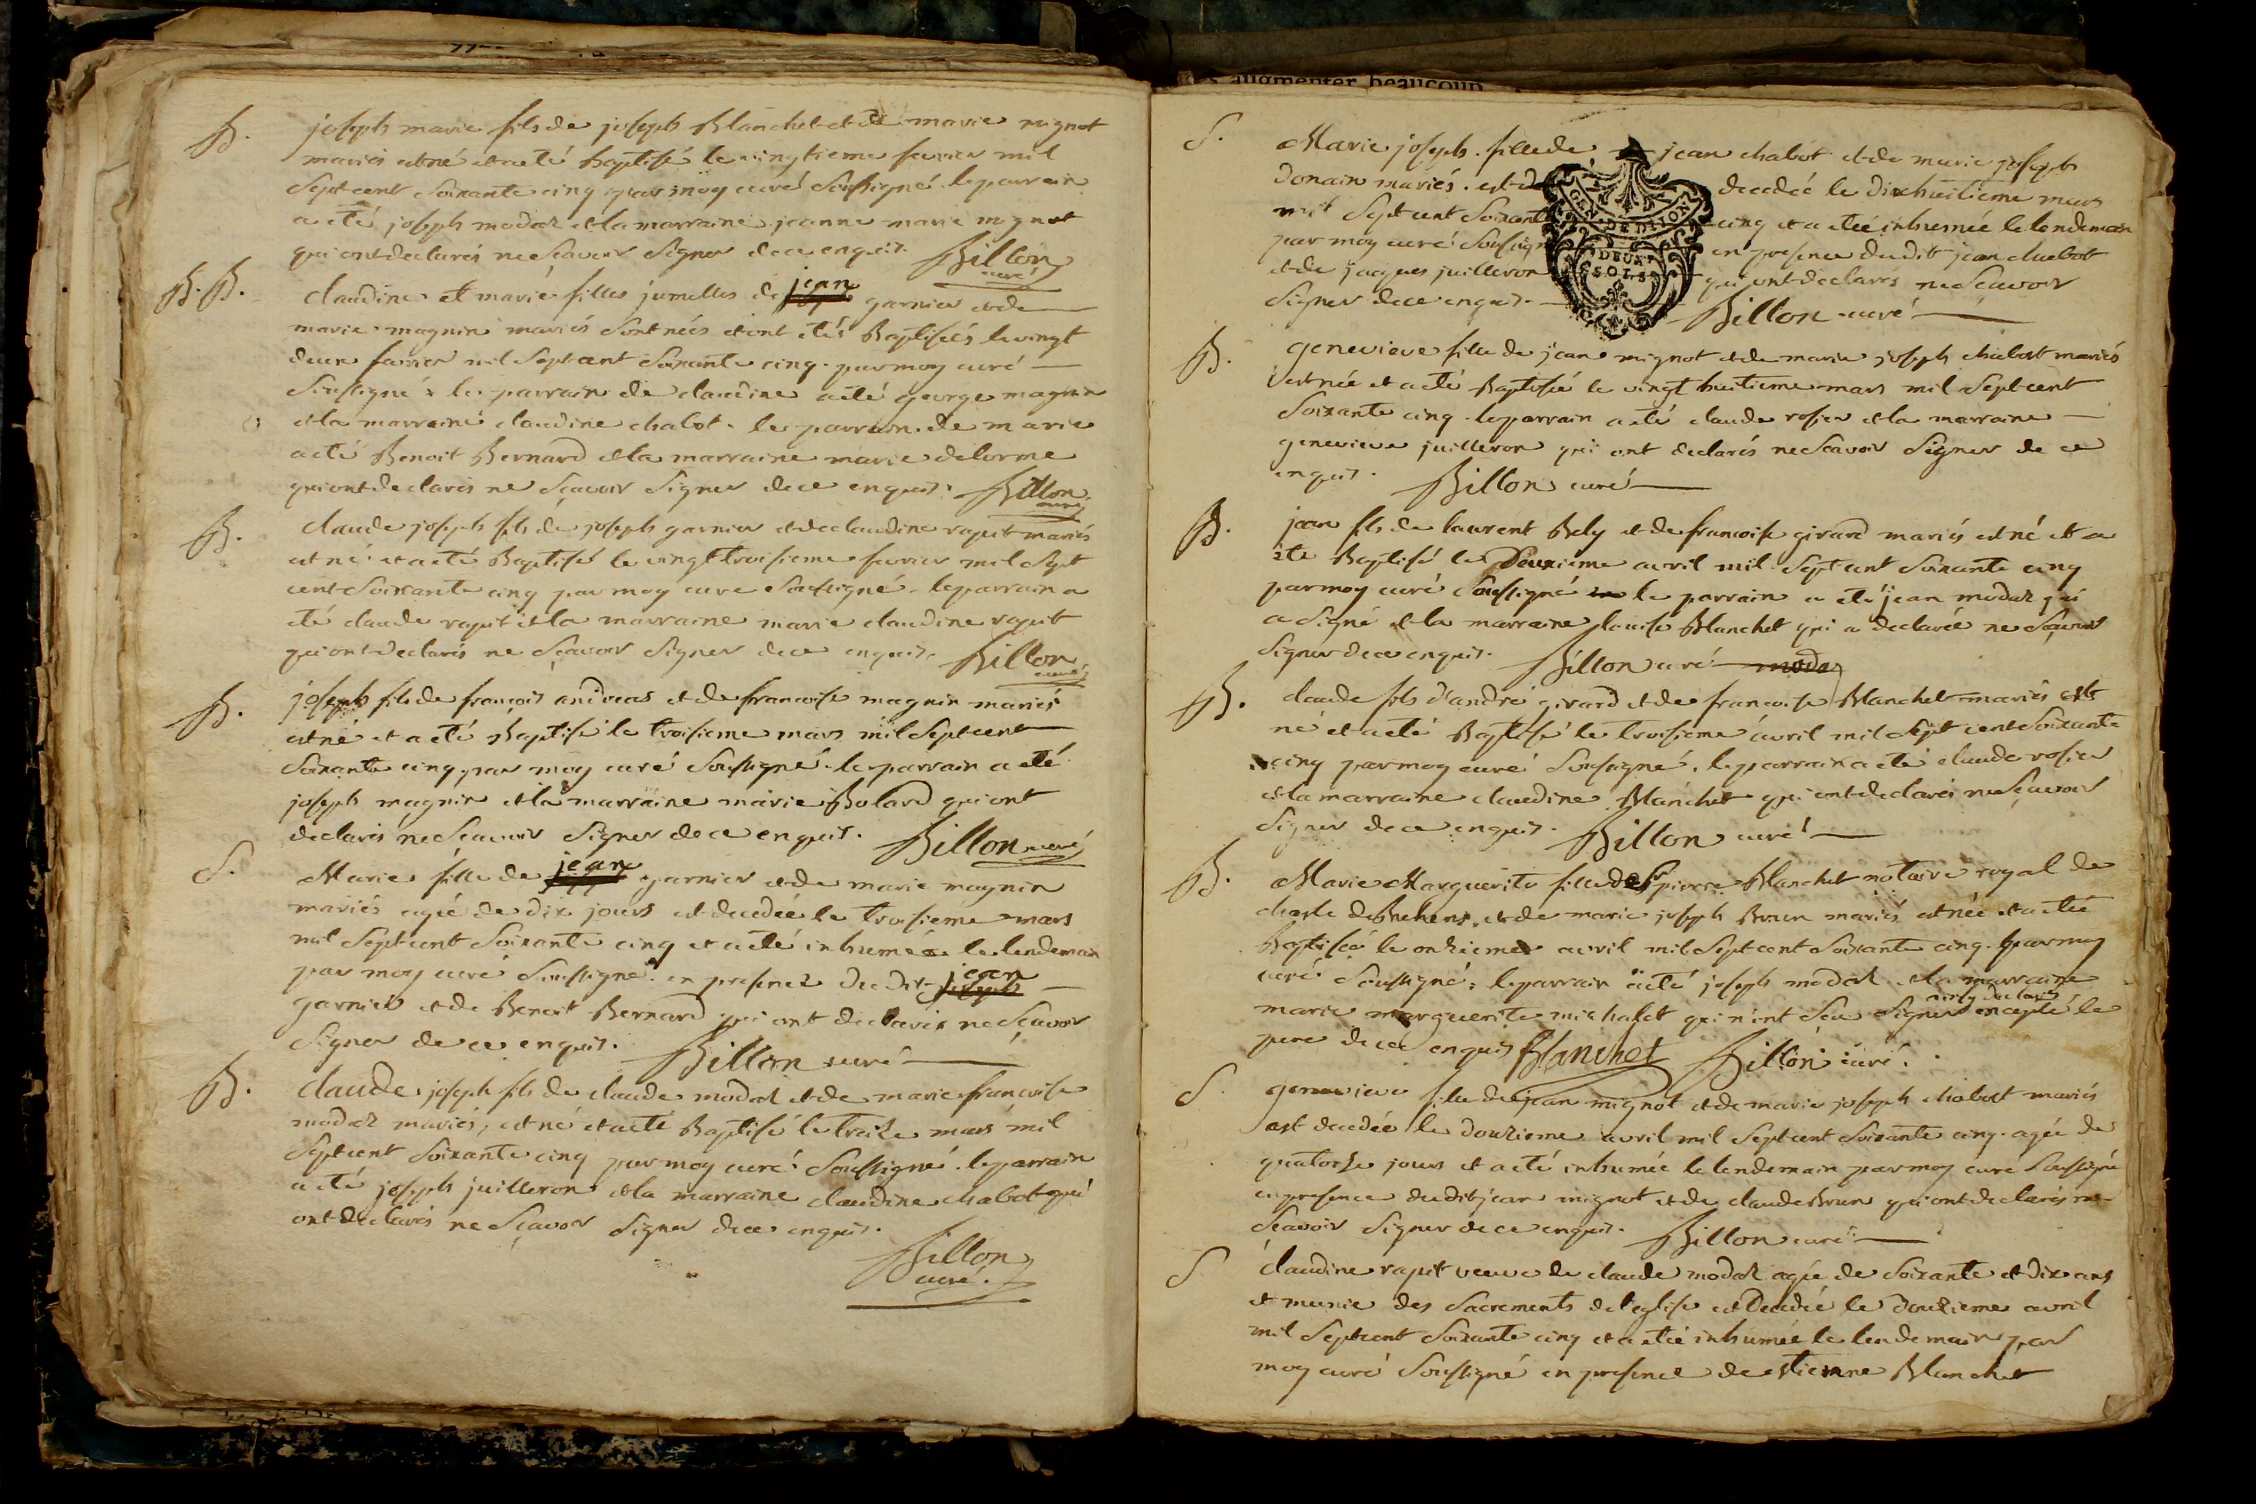 augmenter beaucoup
B. joseph marie fils de joseph Blanchet et de marie mignot
mariés est né et a eté baptisé le vingtieme fevrier mil
sept cent soixante cinq par moy curé soussigné. le parrain
a eté joseph modaz et la marraine jeanne marie mignot
qui ont declarés ne sçavoir signer de ce enquis. Billon
curé
B. B. claudine et marie filles jumelles de jean garnier et de
marie magnin mariés sont nées et ont etés Baptisées le vingt
deux fevrier mil sept cent soixante cinq. par moy curé
soussigné. le parrain de claudine a eté george magnin
et la marraine claudine chabot. le parrain de marie
a eté Benoit Bernard et la marraine marie delorme
qui ont declarés ne sçavoir signer de ce enquis. Billon
curé
B. claude joseph fils de joseph garnier et de claudine raput mariés
est né et a eté Baptisé le vingt troisieme fevrier mil sept
cent soixante cinq par moy curé soussigné. le parrain a
eté claude raput et la marraine marie claudine raput
qui ont declarés ne sçavoir signer de ce enquis. Billon
curé
B. joseph fils de françois et de francoise magnin mariés
est né et a eté Baptisé le troisieme mars mil sept cent
soixante cinq, par moy curé soussigné. le parrain a eté
joseph magnin et la marraine marie Bolard qui ont
declarés ne sçavoir signer de ce enquis. Billon curé
S. Marie fille de jean garnier et de marie magnin
mariés agée de dix jours est decedée le troisieme mars
mil sept cent soixante cinq et a eté inhumée le lendemain
par moy curé soussigné en presence dudit jean
garnier et de Benoit Bernard qui ont declarés ne sçavoir
signer de ce enquis. Billon curé
B. claude joseph fils de claude modaz et de marie francoise
modaz mariés, est né et a eté Baptisé le treize mars mil
sept cent soixante cinq par moy curé soussigné. le parrain
a eté joseph juilleron et la marraine claudine chabot qui
ont declarés ne sçavoir signer de ce enquis.
Billon
curé.
S. Marie joseph fille de jean chabot et de marie joseph
donain mariés. est decedée le dixhuitieme mars
mil sept cent soixante cinq et a etée inhumée le lendemain
par moy curé soussigné en presence dudit jean chabot
et de jacques juilleron qui ont declarés ne sçavoir
signer de ce enquis. Billon curé
GEN. DE DIJON
DEUX
SOLS
B. genevieve fille de jean mignot et de marie joseph chabot mariés
est née et a eté Baptisée le vingt huitieme mars mil sept cent
soixante cinq. le parrain a eté claude rosier et la marraine
genevieve juilleron qui ont declarés ne sçavoir signer de ce
enquis. Billon curé
B. jean fils de laurent Bely et de francoise girard mariés est né et a
eté Baptisé le Deuxieme avril mil sept cent soixante cinq
par moy curé soussigné le parrain a eté jean modaz qui
a signé et la marraine louise Blanchet qui a declarée ne sçavoir
signer de ce enquis. Billon curé modaz
B. claude fils d'andré girard et de francoise Blanchet mariés est
né et a eté Baptisé le troisieme avril mil sept cent soixante
cinq par moy curé soussigné. le parrain a eté claude rosier
et la marraine claudine Blanchet qui ont declarés ne sçavoir
signer de ce enquis. Billon curé
B. Marie Marguerite fille de Sr pierre Blanchet notaire royal de
et de marie joseph Brun mariés est née et a etée
baptisée le onzieme avril mil sept cent soixante cinq. par moy
curé soussigné. le parrain a eté joseph modaz et la marraine
marie marguerite michalet qui n'ont sçu signer excepté le
pere de ce enquis Blanchet Billon curé.
S. genevieve fille de jean mignot et de marie joseph chabot mariés
est decedée le douzieme avril mil sept cent soixante cinq. agée de
quatorze jours et a eté inhumée le lendemain par moy curé soussigné
en presence dudit jean mignot et de claude Brun qui ont declarés ne
sçavoir signer de ce enquis. Billon curé
S claudine raput veuve de claude modaz agée de soixante et dix ans
et munie des sacrements de l'eglise est Decedée le douzieme avril
mil sept cent soixante cinq et a eté inhumée le lendemain par
moy curé soussigné en presence de etienne Blanchet